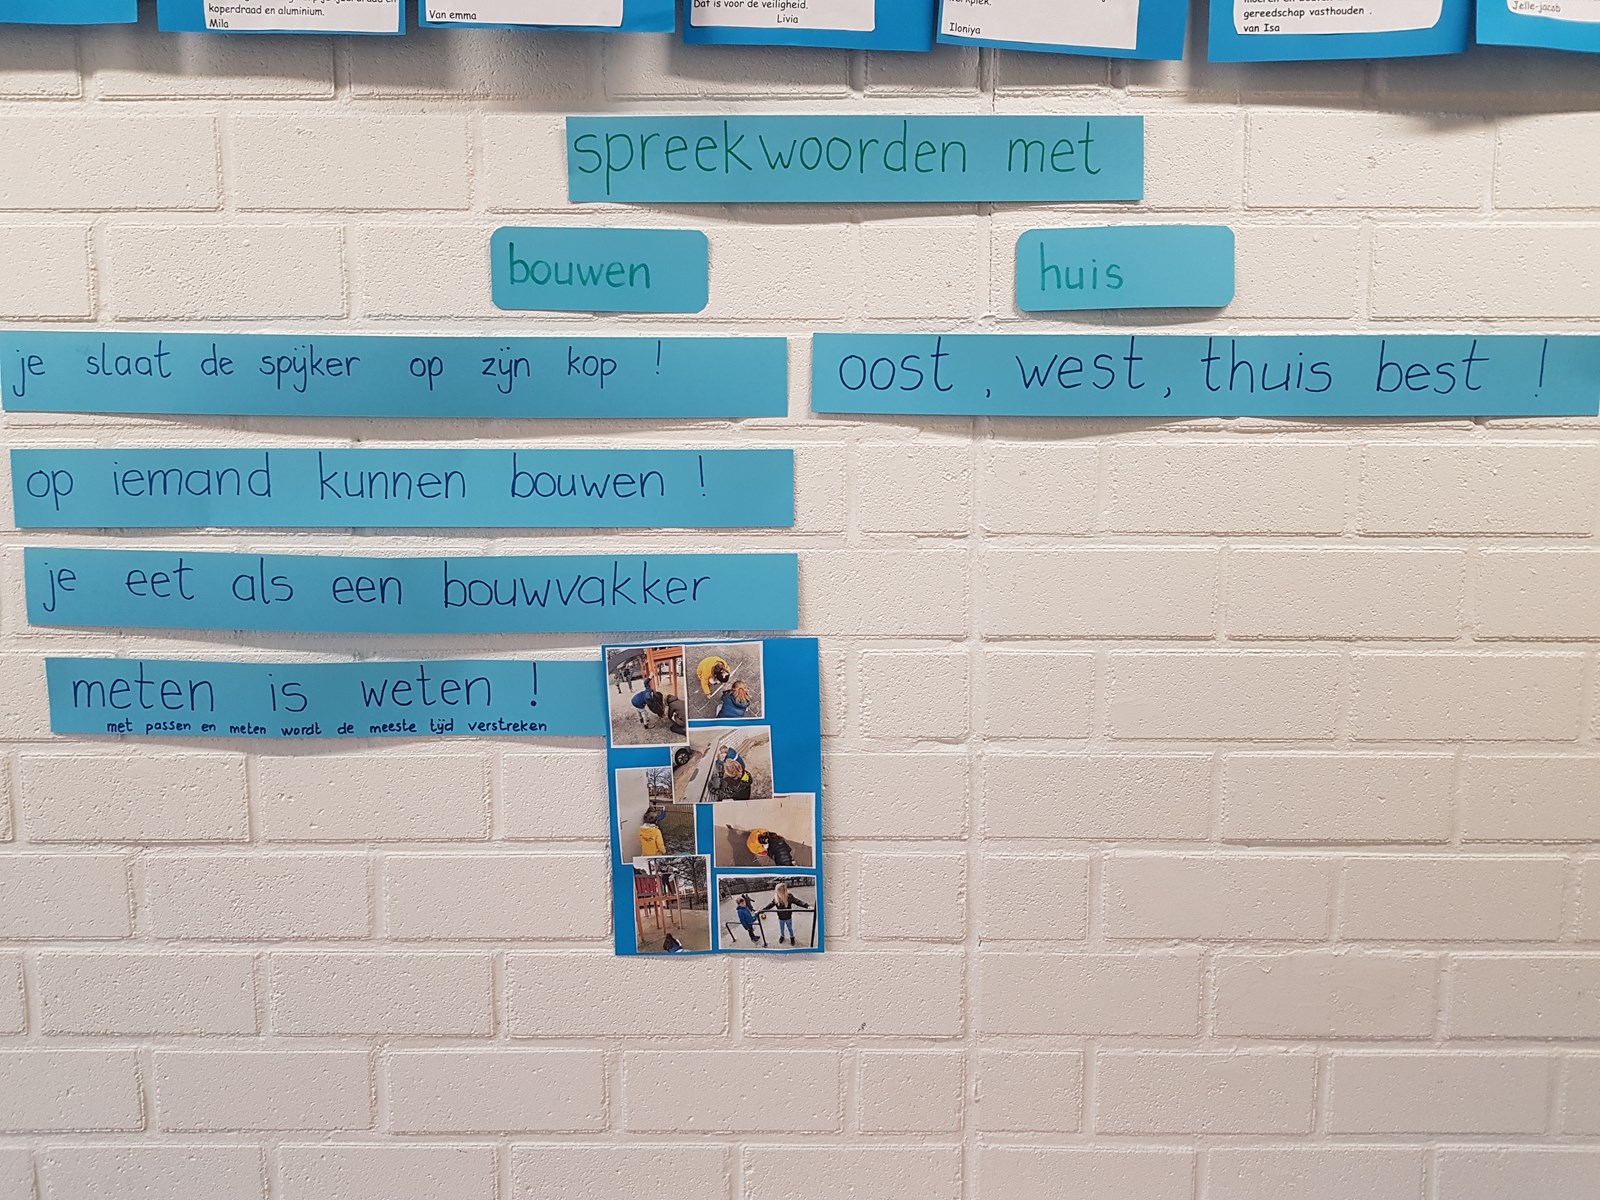 koperdraad en aluminium.
Mila
Van emma
Dat is voor de veiligheid.
Livia
Iloniya
gereedschap vasthouden .
van Isa
Jelle-jacob
spreekwoorden met
bouwen
huis
je slaat de spijker op zijn kop !
oost , west, thuis best !
op iemand kunnen bouwen !
je eet als een bouwvakker
meten is weten !
met passen en meten wordt de meeste tijd verstreken